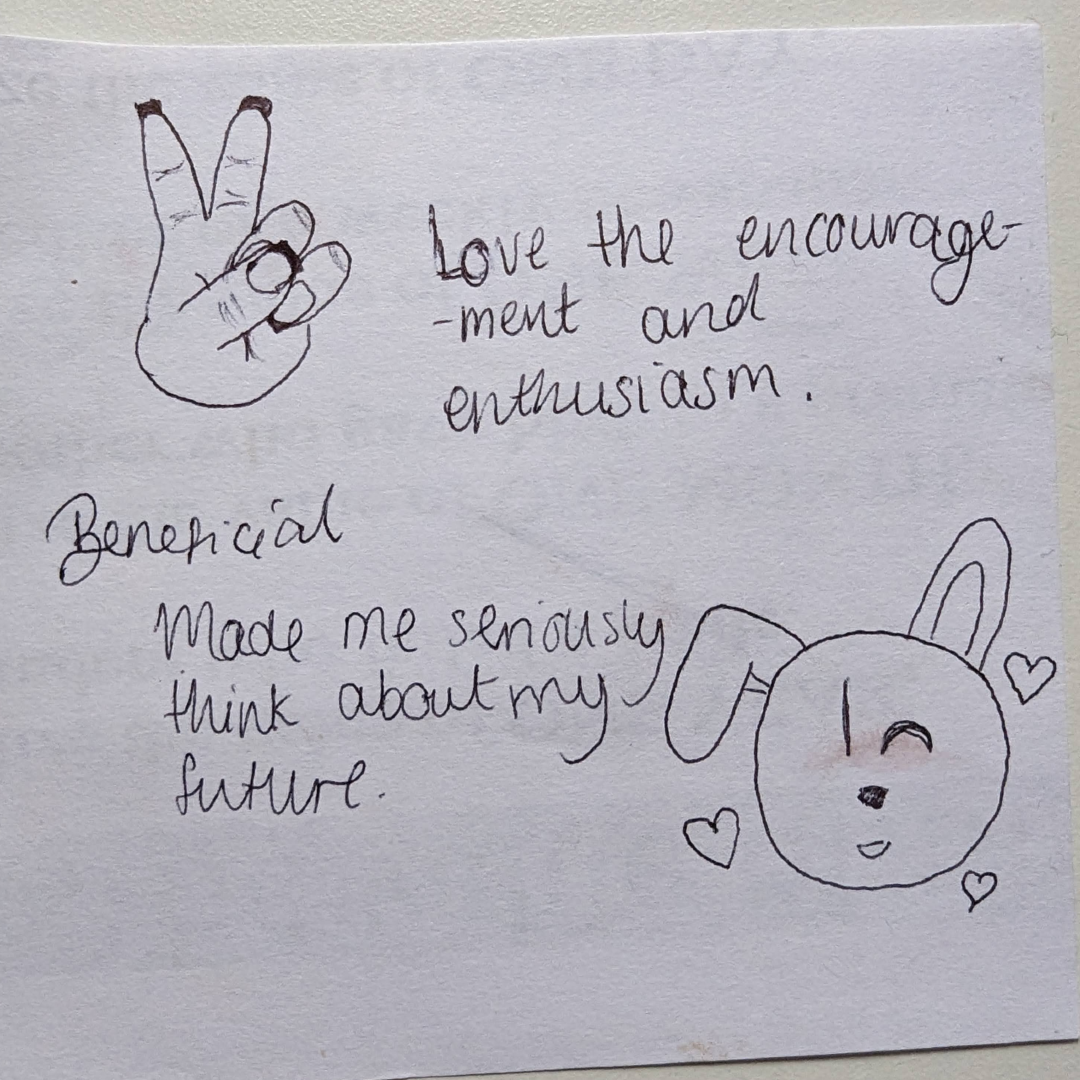 Love the encourage-
-ment and
enthusiasm.
Beneficial
Made me seriously
think about my
future.